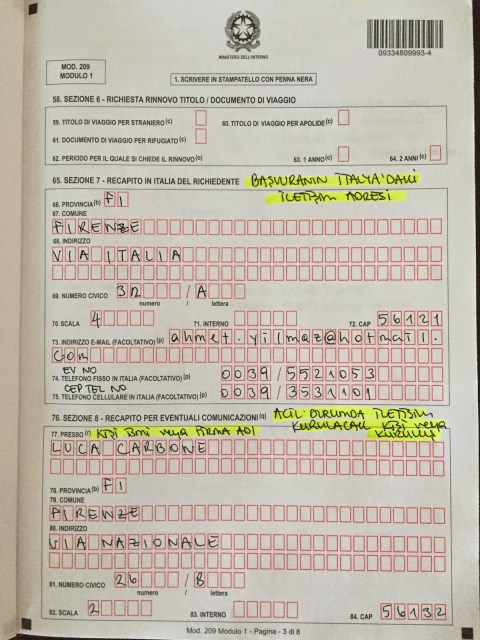 MINISTERO DELL'INTERNO
09334809993-4
MOD. 209
MODULO 1
1. SCRIVERE IN STAMPATELLO CON PENNA NERA
58. SEZIONE 6 - RICHIESTA RINNOVO TITOLO / DOCUMENTO DI VIAGGIO
59. TITOLO DI VIAGGIO PER STRANIERO (c)
60. TITOLO DI VIAGGIO PER APOLIDE (c)
61. DOCUMENTO DI VIAGGIO PER RIFUGIATO (c)
62. PERIODO PER IL QUALE SI CHIEDE IL RINNOVO (o)
63. 1 ANNO (c)
64. 2 ANNI (c)
65. SEZIONE 7 - RECAPITO IN ITALIA DEL RICHIEDENTE BAŞVURANIN İTALYA'DAKİ
İLETİŞİM ADRESİ
66. PROVINCIA (b) FI
67. COMUNE
FIRENZE
68. INDIRIZZO
VIA ITALIA
69. NUMERO CIVICO 32 / A
numero / lettera
70. SCALA 4 71. INTERNO 72. CAP 56121
73. INDIRIZZO E-MAIL (FACOLTATIVO) (p) ahmet.yilmaz@hotmail.
com
EV NO
74. TELEFONO FISSO IN ITALIA (FACOLTATIVO) (p) 0039/5521053
CEP TEL NO
75. TELEFONO CELLULARE IN ITALIA (FACOLTATIVO) (p) 0039/3531101
76. SEZIONE 8 - RECAPITO PER EVENTUALI COMUNICAZIONI (q) ACİL DURUMDA İLETİŞİM
KURULACAK KİŞİ veya
77. PRESSO (r) KİŞİ İsmi veya FİRMA ADI KURULUŞ
LUCA CARBONE
78. PROVINCIA (b) FI
79. COMUNE
FIRENZE
80. INDIRIZZO
VIA NAZIONALE
81. NUMERO CIVICO 26 / B
numero / lettera
82. SCALA 2 83. INTERNO 84. CAP 56132
Mod. 209 Modulo 1 - Pagina - 3 di 8